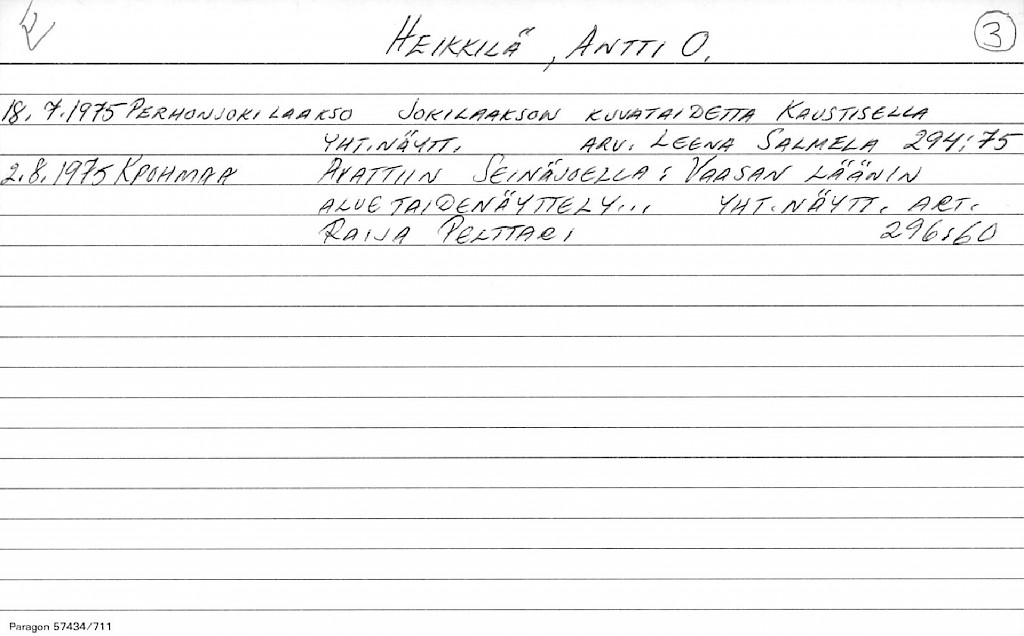 K
HEIKKILÄ, ANTTI O. 3
18.7.1975 PERHONJOKILAAKSO JOKILAAKSON KUVATAIDETTA KAUSTISELLA
YHT.NÄYTT. ARV. LEENA SALMELA 294:75
2.8.1975 KPOHMAA AVATTIIN SEINÄJOELLA: VAASAN LÄÄNIN
ALUETAIDENÄYTTELY... YHT.NÄYTT. ART.
RAIJA PELTTARI 296:60
Paragon 57434/711